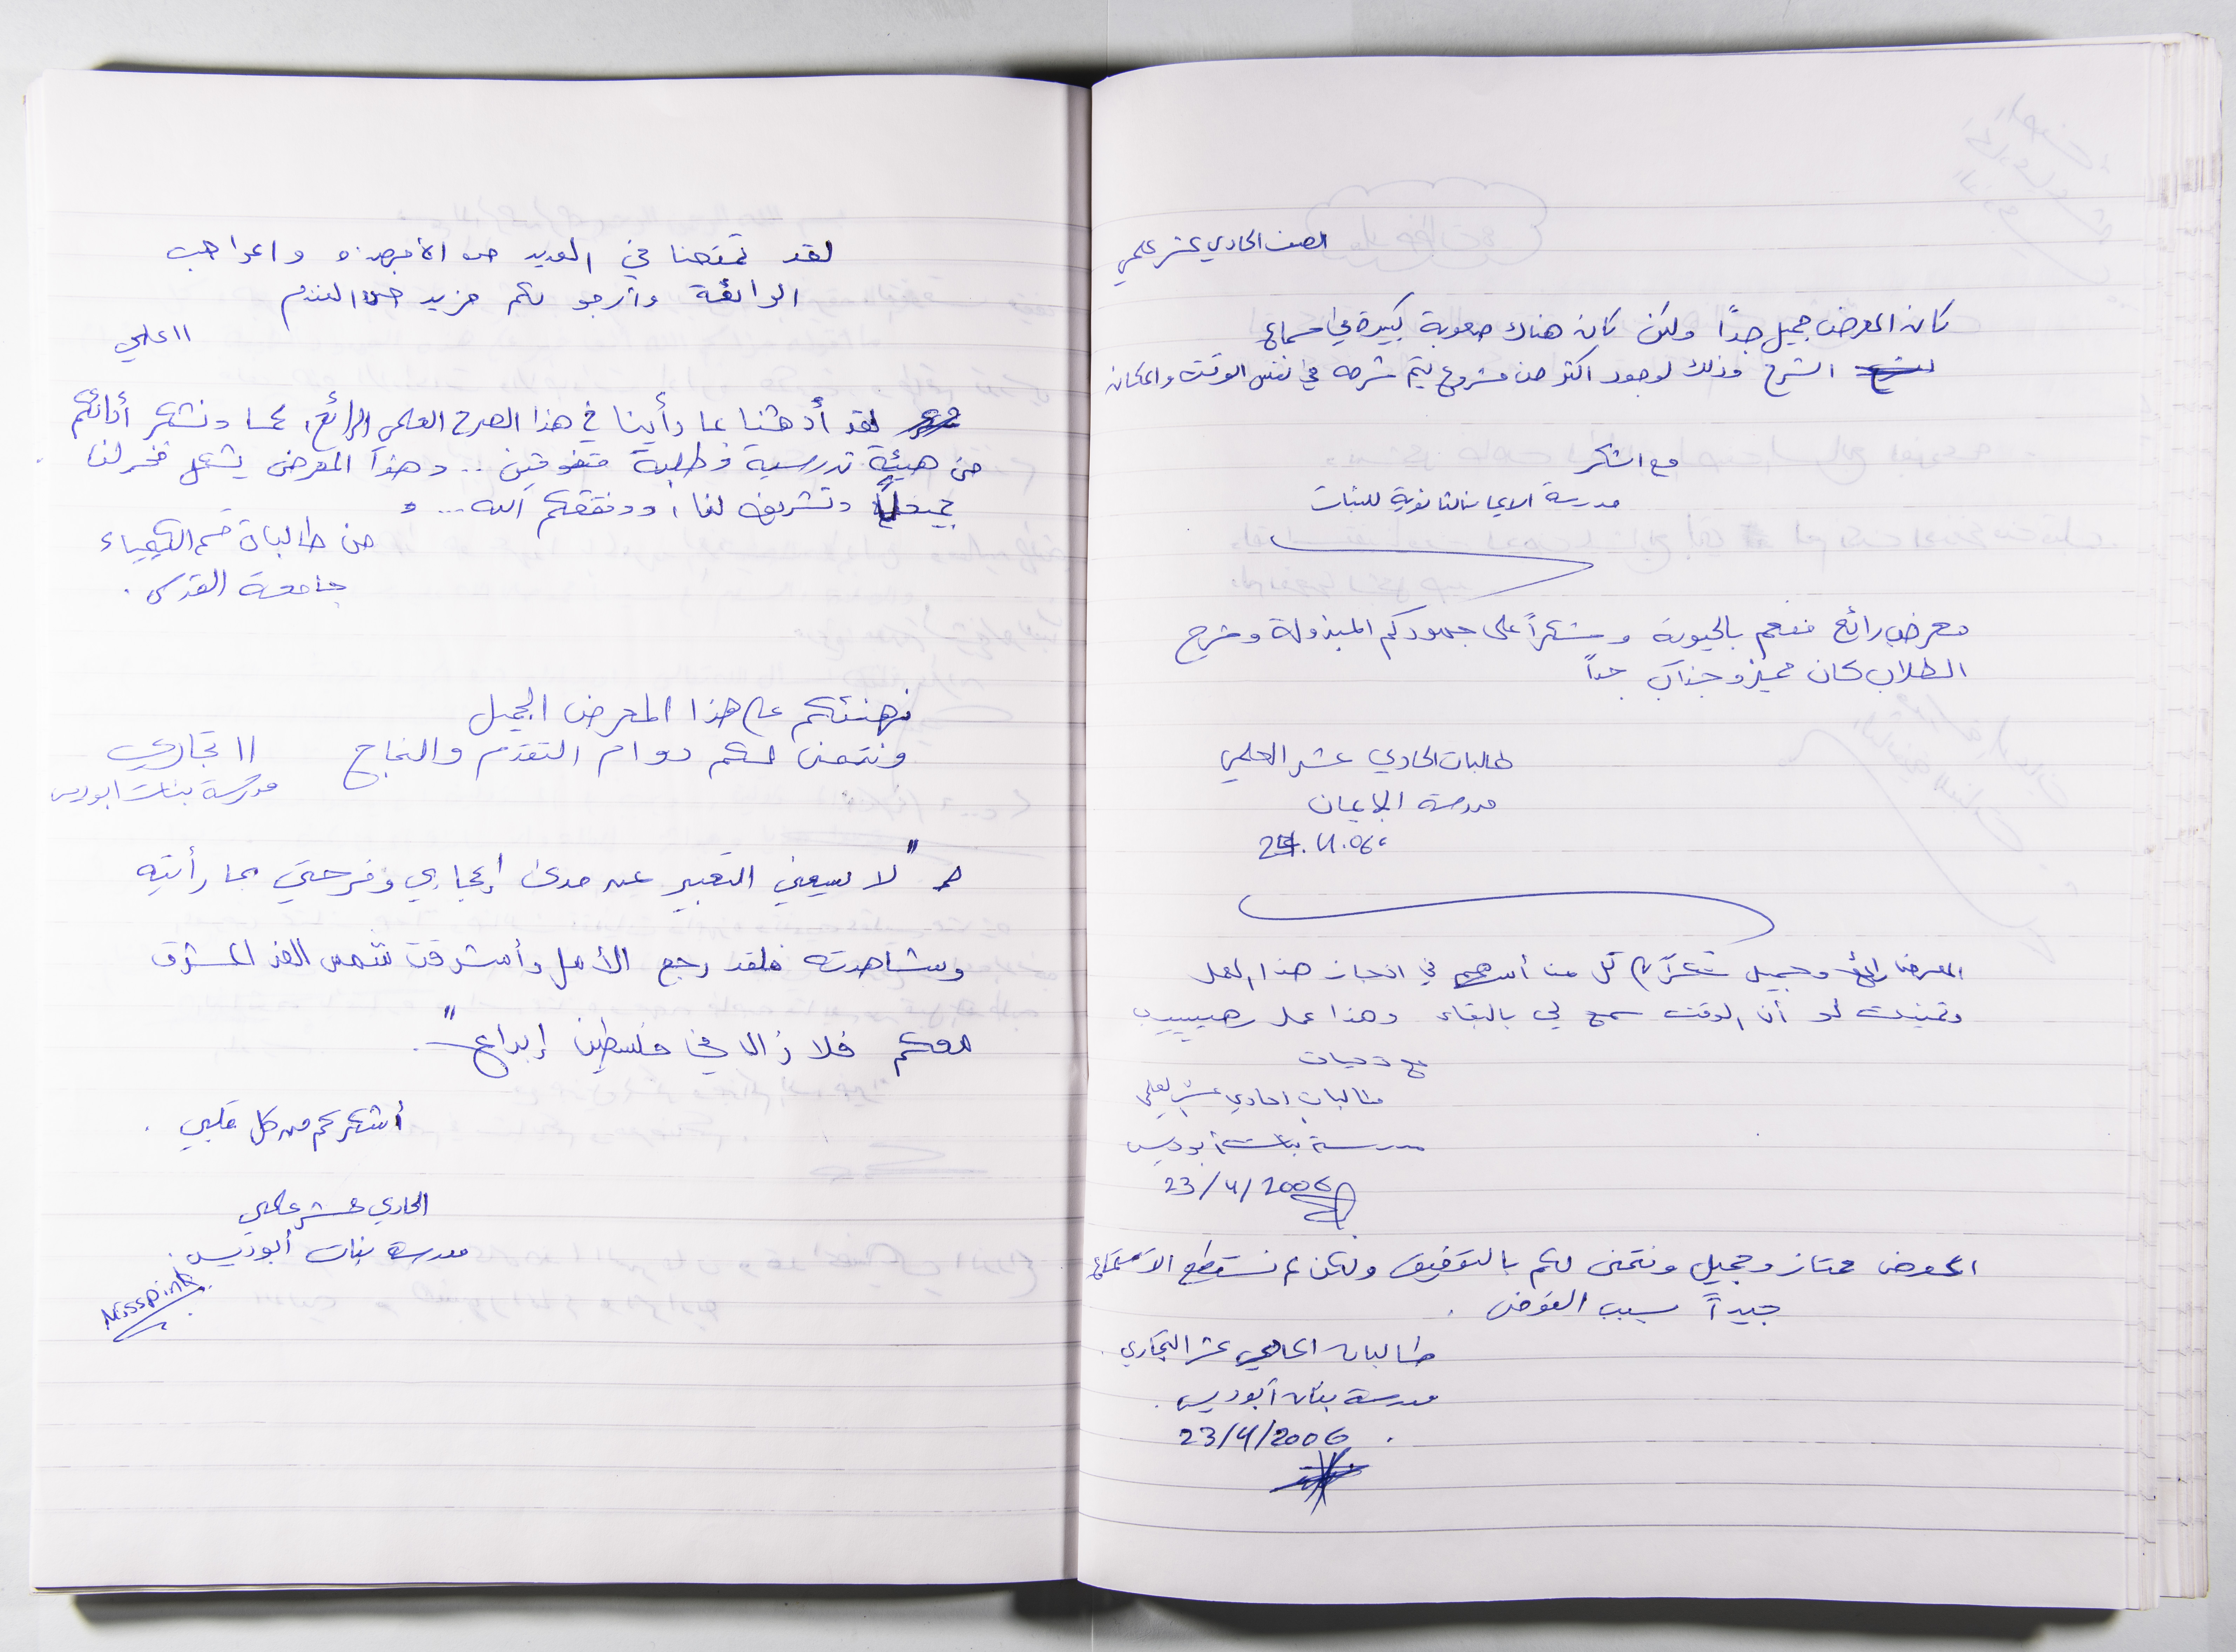 الصف الحادي عشر علمي
كان المعرض جميل جداً ولكن كان هناك صعوبة كبيرة في سماع
الشرح وذلك لوجود اكثر من مشروع يتم شرحه في نفس الوقت والمكان
مع الشكر
مدرسة الايمان الثانوية للبنات
معرض رائع مفعم بالحيوية وشكراً على جهودكم المبذولة وشرح
الطلاب كان مميز وجذاب جداً
طالبات الحادي عشر العلمي
مدرسة الايمان
المعرض رائع وجميل شكراً لكل من أسهم في انجاز هذا العمل
وتمنيت لو أن الوقت سمح لي بالبقاء وهذا عمل رهيييييب
مع تحيات
طالبات الحادي عشر العلمي
مدرسة بنات أبوديس
23/4/2006
المعرض ممتاز وجميل ونتمنى لكم بالتوفيق ولكن لم نستطع الاستماع
جيداً بسبب الفوضى .
طالبات الحادي عشر التجاري .
مدرسة بنات أبوديس .
23/4/2006
لقد تمتعنا في العديد من الأجهزة والمواهب
الرائعة وأرجو لكم مزيد من التقدم
١١ علمي
لقد أدهشنا بما رأينا في هذا الصرح العلمي الرائع، كما ونشكر أدائكم
من هيئة تدرسية وطلبة متفوقين .. وهذا المعرض يشكل فخر لنا
وتشريف لنا، ووفقكم الله ...
من طالبات قسم الكيمياء
جامعة القدس .
نهنئكم على هذا المعرض الجميل
ونتمنى لكم دوام التقدم والنجاح
١١ تجاري
مدرسة بنات ابوديس
" لا يسعني التعبير عن مدى إعجابي وفرحتي بما رأيته
وشاهدته فلقد رجع الأمل وأشرقت شمس الغد المشرق
معكم فلا زال في فلسطين إبداع " .
أشكركم من كل قلبي .
الحادي عشر علمي
مدرسة بنات أبوديس .
Miss pink